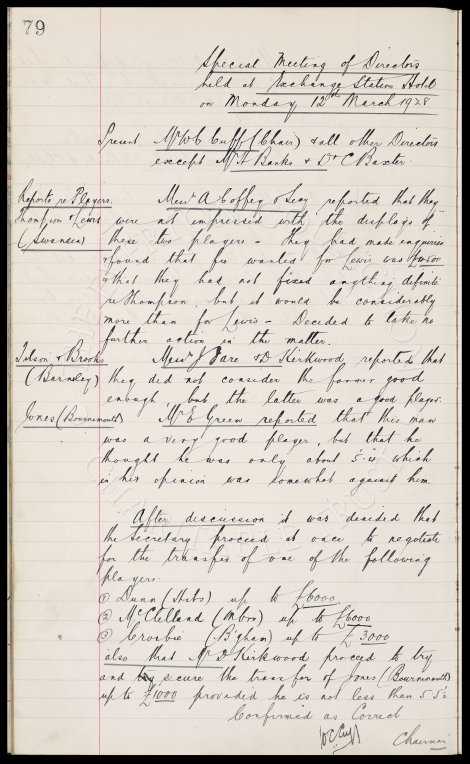 79
Special Meeting of Directors
held at Exchange Station Hotel
on Monday, 12th March 1928
Present Mr W C Cuff (Chair) & all other Directors
except Mr A Banks & Dr C Baxter.
Reports re Players.
Thompson & Lewis
(Swansea)
Messrs A Coffey & Secy reported that they
were not impressed with the displays of
these two players – They had made enquiries
& found that fee wanted for Lewis was
& that they had not fixed anything definite
re Thompson, but it would be considerably
more than for Lewis – Decided to take no
further action in the matter.
Tilson & Brook
(Barnsley)
Messrs J Fare & D Kirkwood reported that
they did not consider the former good
enough, but the latter was a good player.
Jones (Bournemouth)
Mr E Green reported that this man
was a very good player, but that he
thought he was only about 5'4" which
in his opinion was somewhat against him.
After discussion it was decided that
the Secretary proceed at once to negotiate
for the transfer of one of the following
players:
① Dunn (Hibs) up to £6000
② McClelland (Mbro) up to £6000
③ Crosbie (B'gham) up to £3000
also that Mr D Kirkwood proceed to try
and try secure the transfer of Jones (Bournemouth)
up to £1000 provided he is not less than 5 5"
Confirmed as Correct
W C Cuff
Chairman